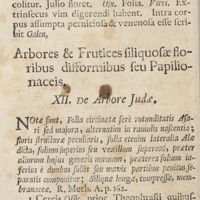 colitur. Julio floret. Usu. Folia. Vires. Ex-
trinsecus vim digerendi habent. Intra cor-
pus assumpta perniciosa & venenosa esse scri-
bit Galen,
Arbores & Frutices siliquosæ flo-
ribus difformibus seu Papilio-
naceis.
XII. De Arbore Judæ.
Note sunt, Folia circinatæ ferè rotunditatis Asa-
ri sed majora, alternatim in ramulis nascentia;
floris structuræ peculiaris, folia etenim lateralia Alæ
dicta, solùm superius seu vexillum superant, præter
aliorum hujus generis morem, præterea solùm in-
ferius è duobus solis seu matris partibus penitus se-
paratis componitur. Siliquæ longæ, compressæ, mem-
branaceæ. R. Meth. A. p. 162.
1. Cercis Offic. prior. Theophrasti quibus-